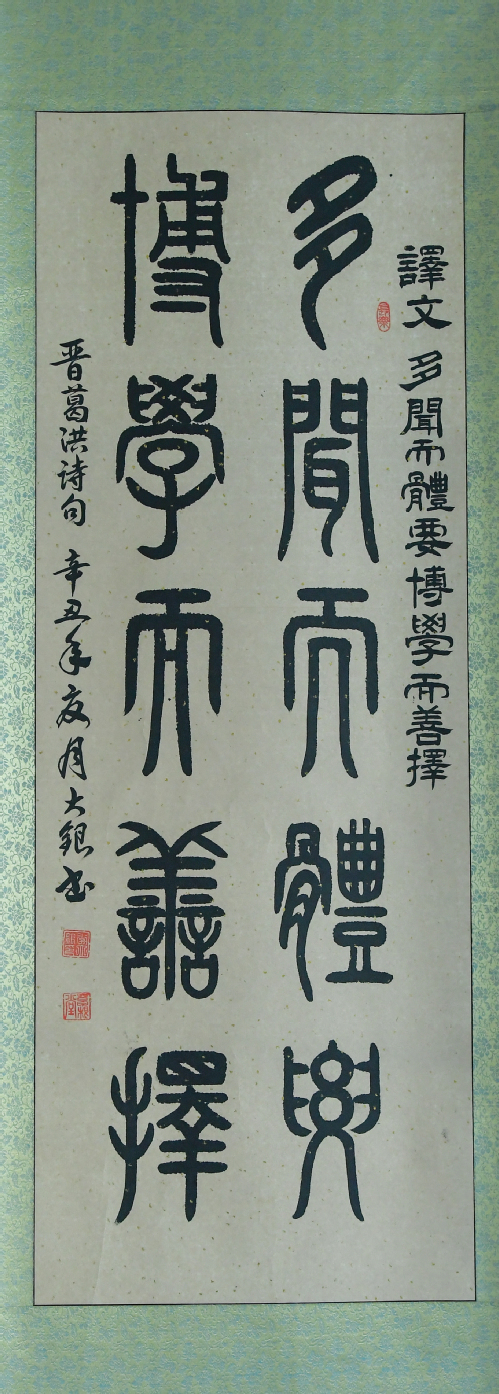 譯文 多聞而體要博學而善擇
多聞而體要
博學而善擇
晋葛洪诗句 辛丑年夏月大銀书